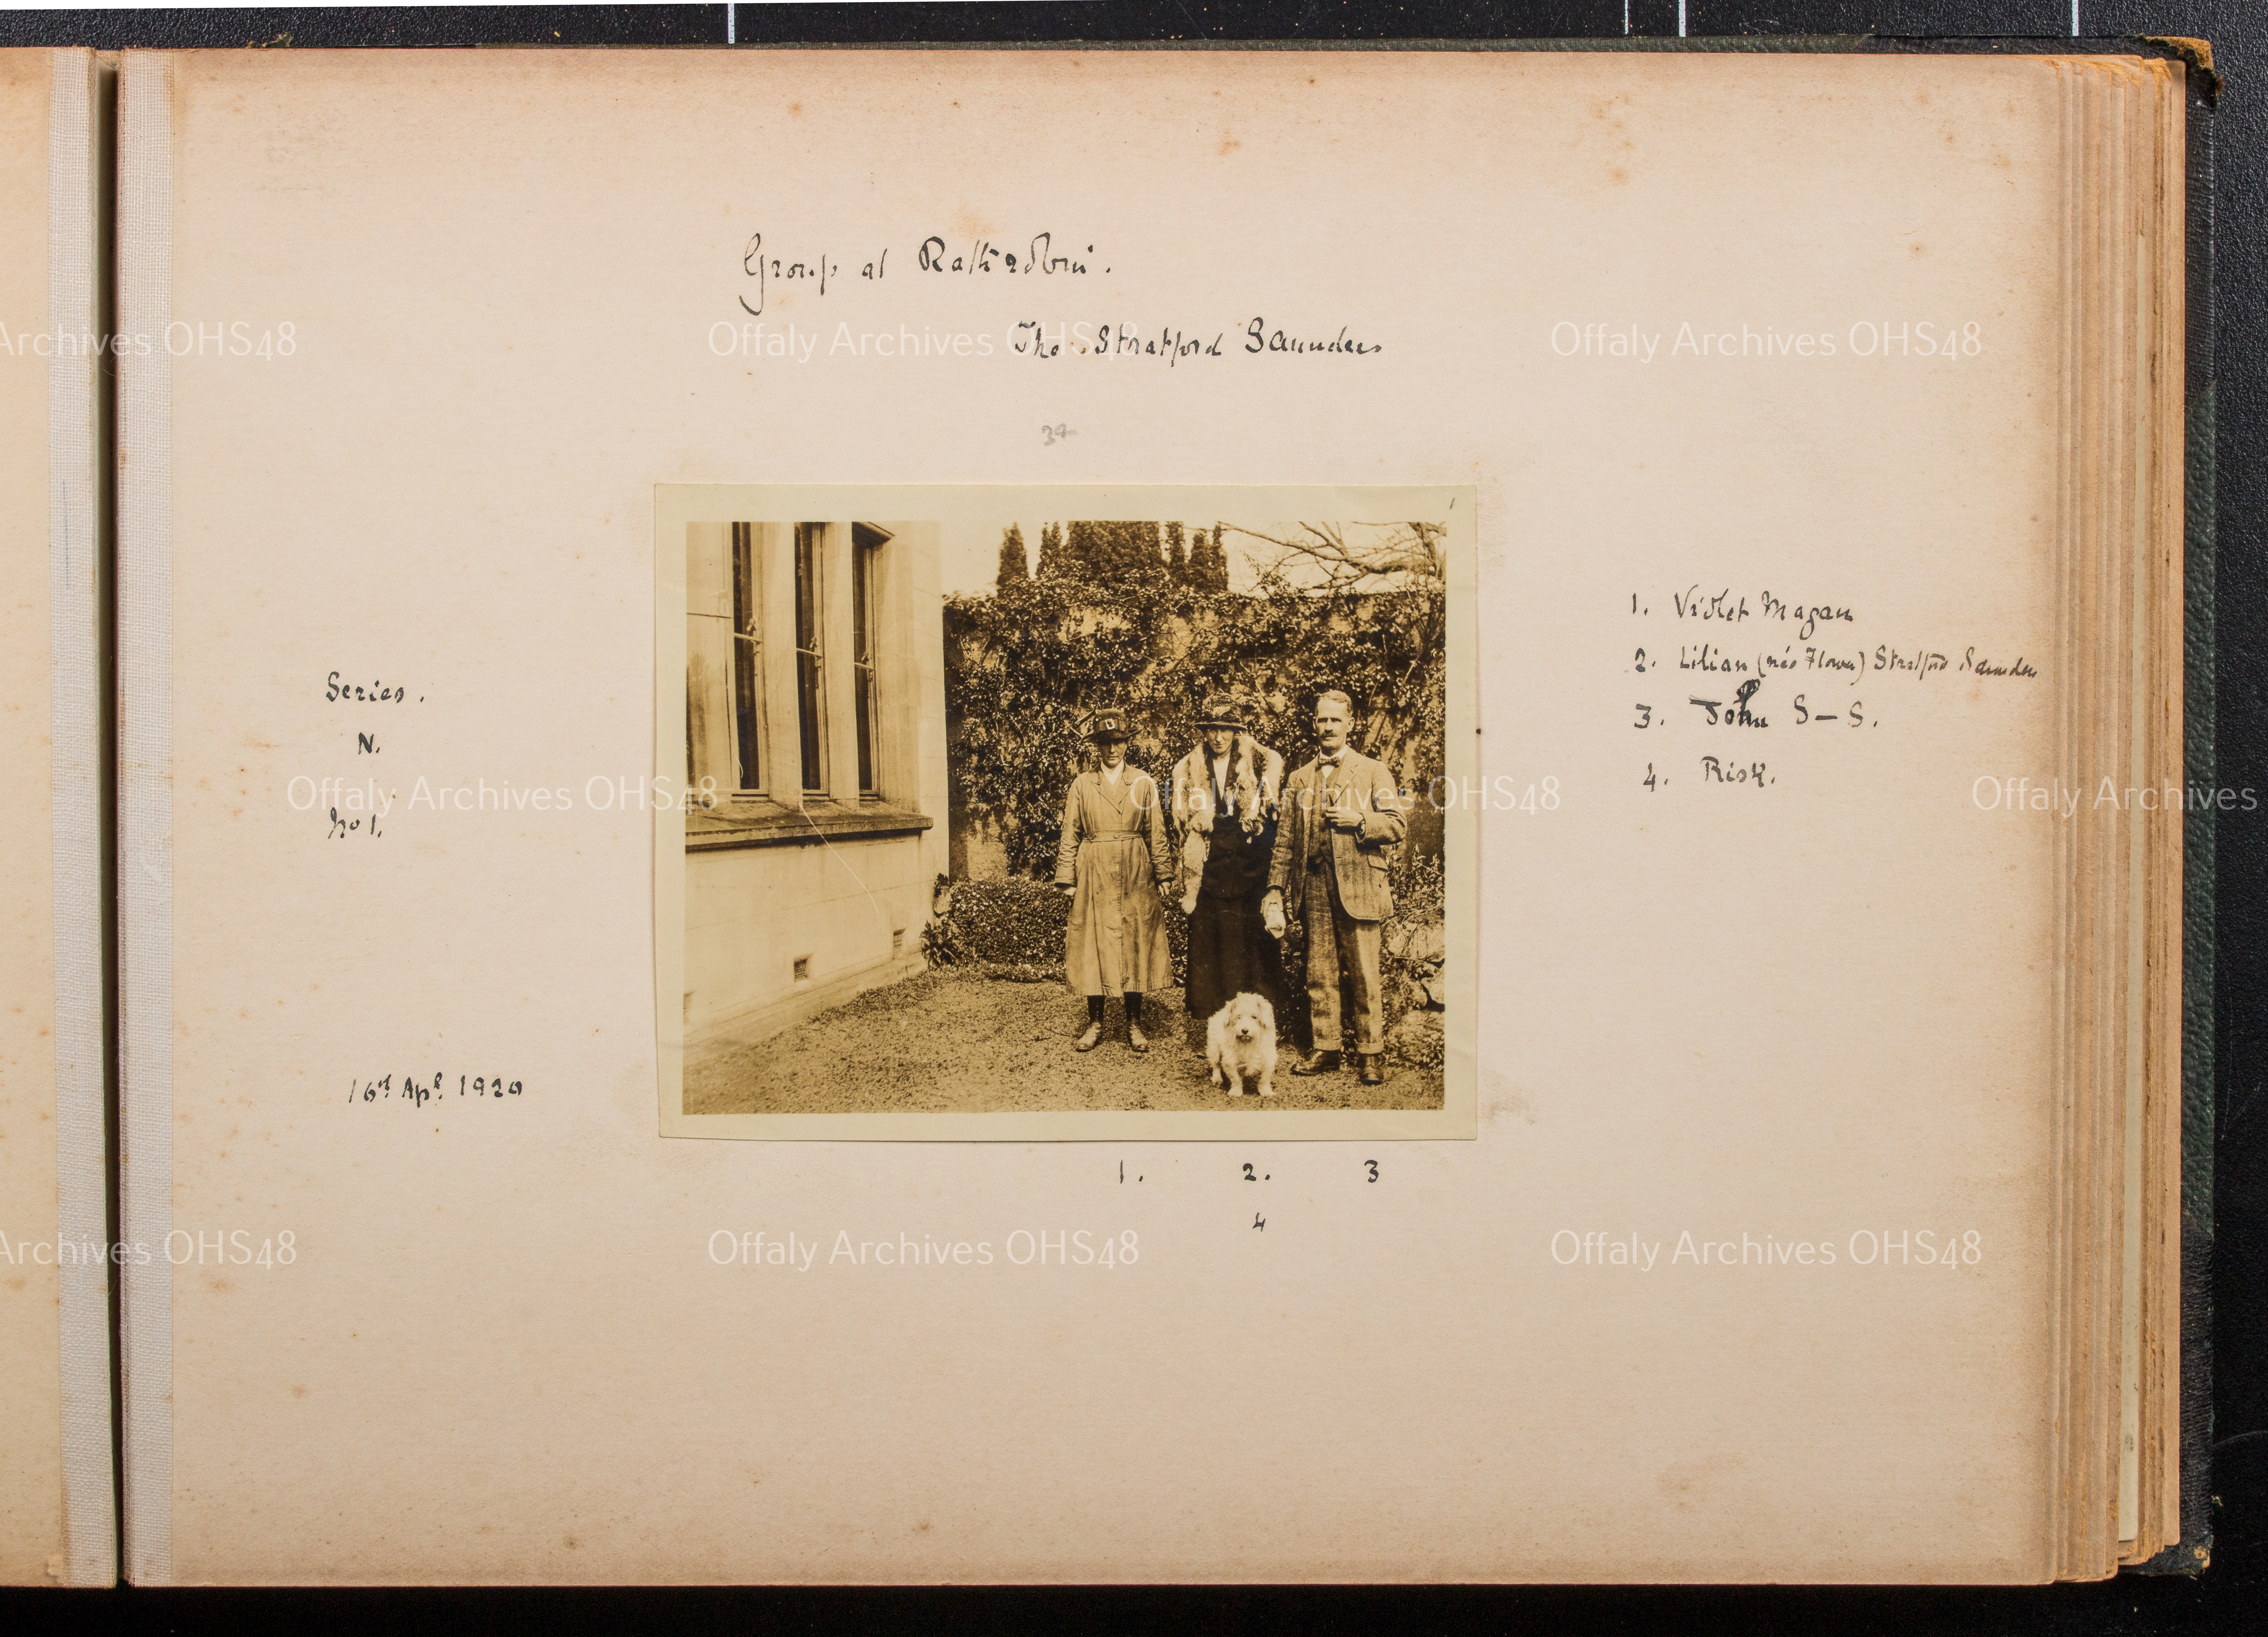 Group at Rathrobin.
The Stratford Saunders
34
1
Series.
N.
No 1.
16th Apl. 1920
1. Violet Magan
2. Lilian (née Flower) Stratford Saunders
3. John S-S.
4. Risk.
1. 2. 3
4
Archives OHS48
Offaly Archives OHS48
Offaly Archives OHS48
Offaly Archives OHS48
Offaly Archives OHS48
Offaly Archives
Archives OHS48
Offaly Archives OHS48
Offaly Archives OHS48